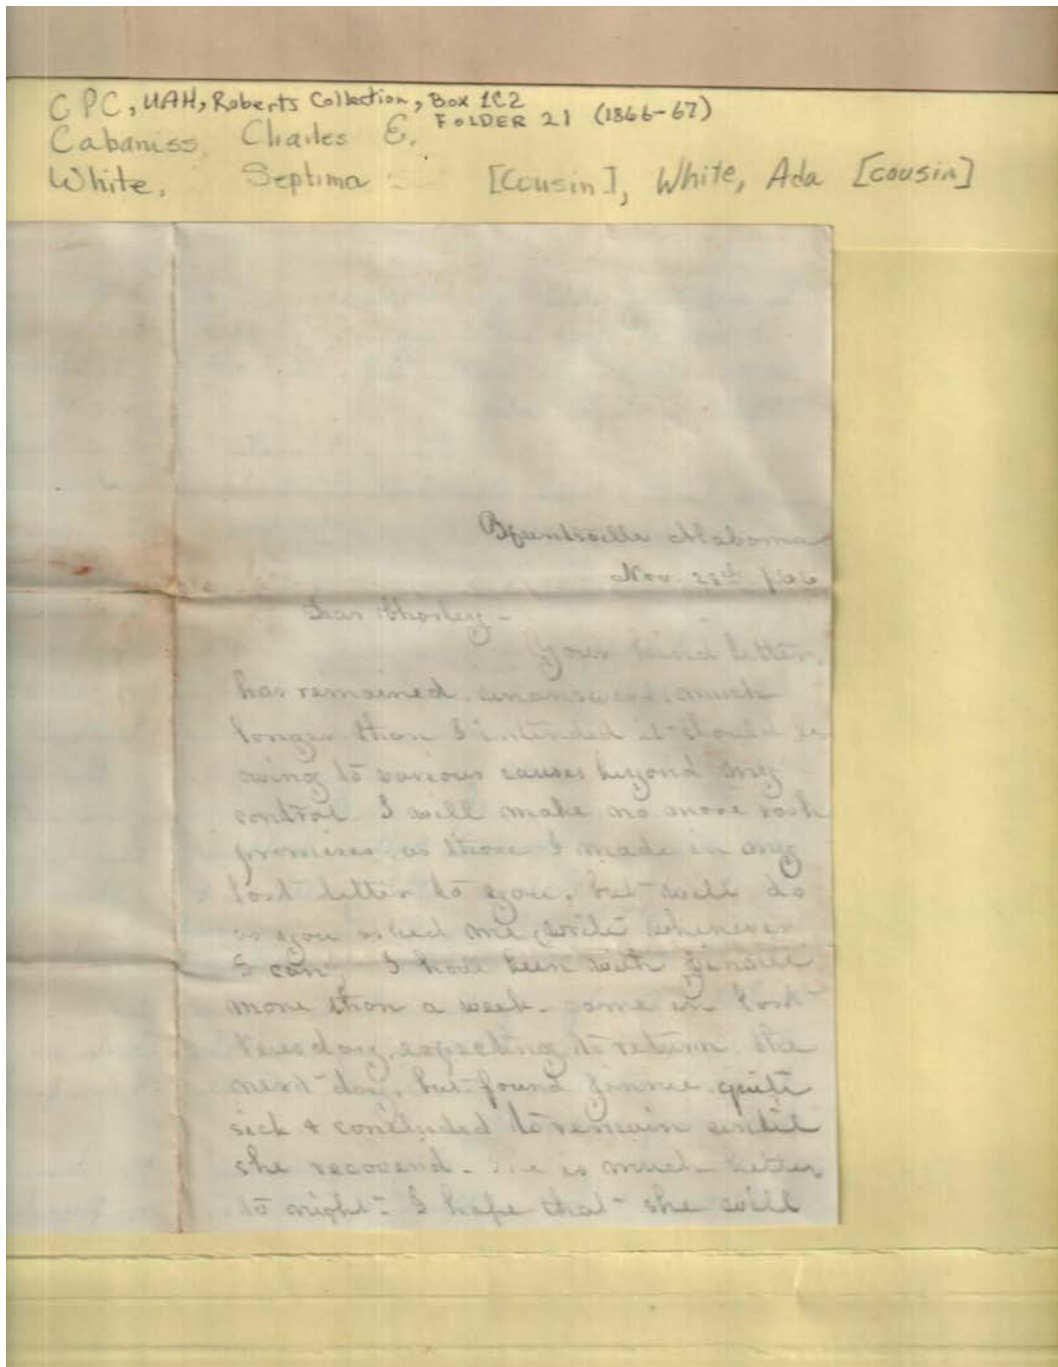 CPC, UAH, Roberts Collection, Box 1C2
FOLDER 21 (1866-67)
Cabaniss, Charles E.
White, Septima [Cousin], White, Ada [cousin]
Huntsville Alabama
Nov. 28th 1866
Dear Charley -
Your kind letter,
has remained unanswered much
longer than I intended it should be
owing to various causes beyond my
control. I will make no more rash
promises, as those I made in my
last letter to you, but will do
as you asked me, write whenever
I can. I have been with Jinnie
more than a week - came in last
Tuesday, expecting to return the
next day, but found Jinnie quite
sick & concluded to remain until
she recovered - She is much better
to night - I hope that she will